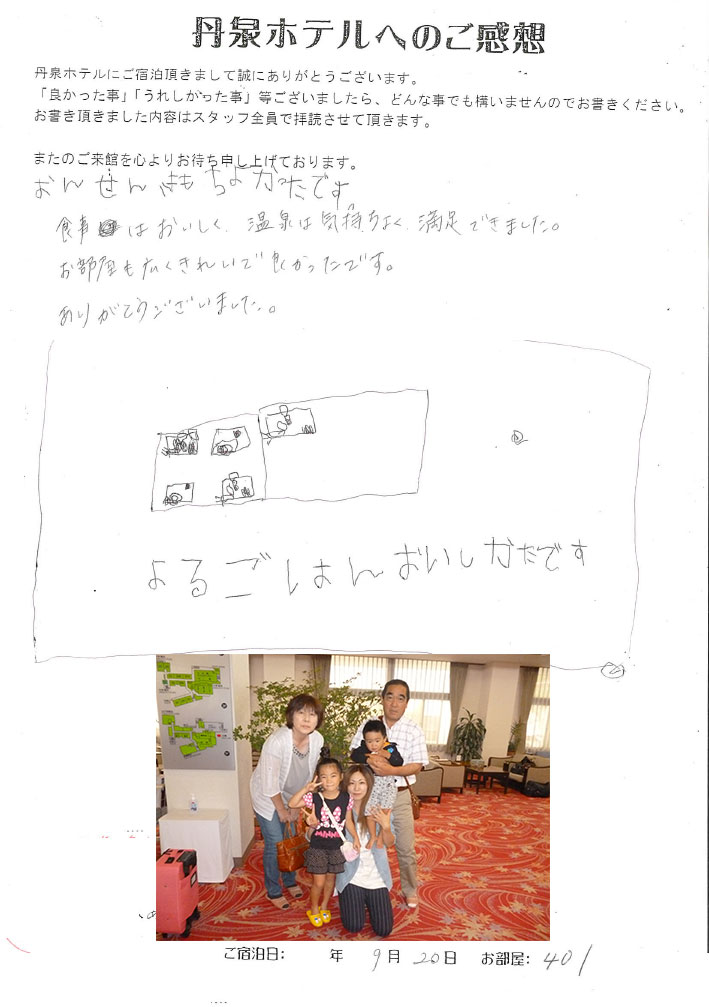 丹泉ホテルへのご感想
丹泉ホテルにご宿泊頂きまして誠にありがとうございます。
「良かった事」「うれしかった事」等ございましたら、どんな事でも構いませんのでお書きください。
お書き頂きました内容はスタッフ全員で拝読させて頂きます。
またのご来館を心よりお待ち申し上げております。
おんせんきもちよかたです
食事はおいしく、温泉は気持ちよく、満足できました。
お部屋も広くきれいで良かったです。
ありがとうございました。
よるごはんおいしかたです
ご宿泊日: 年 9月 20日 お部屋: 401